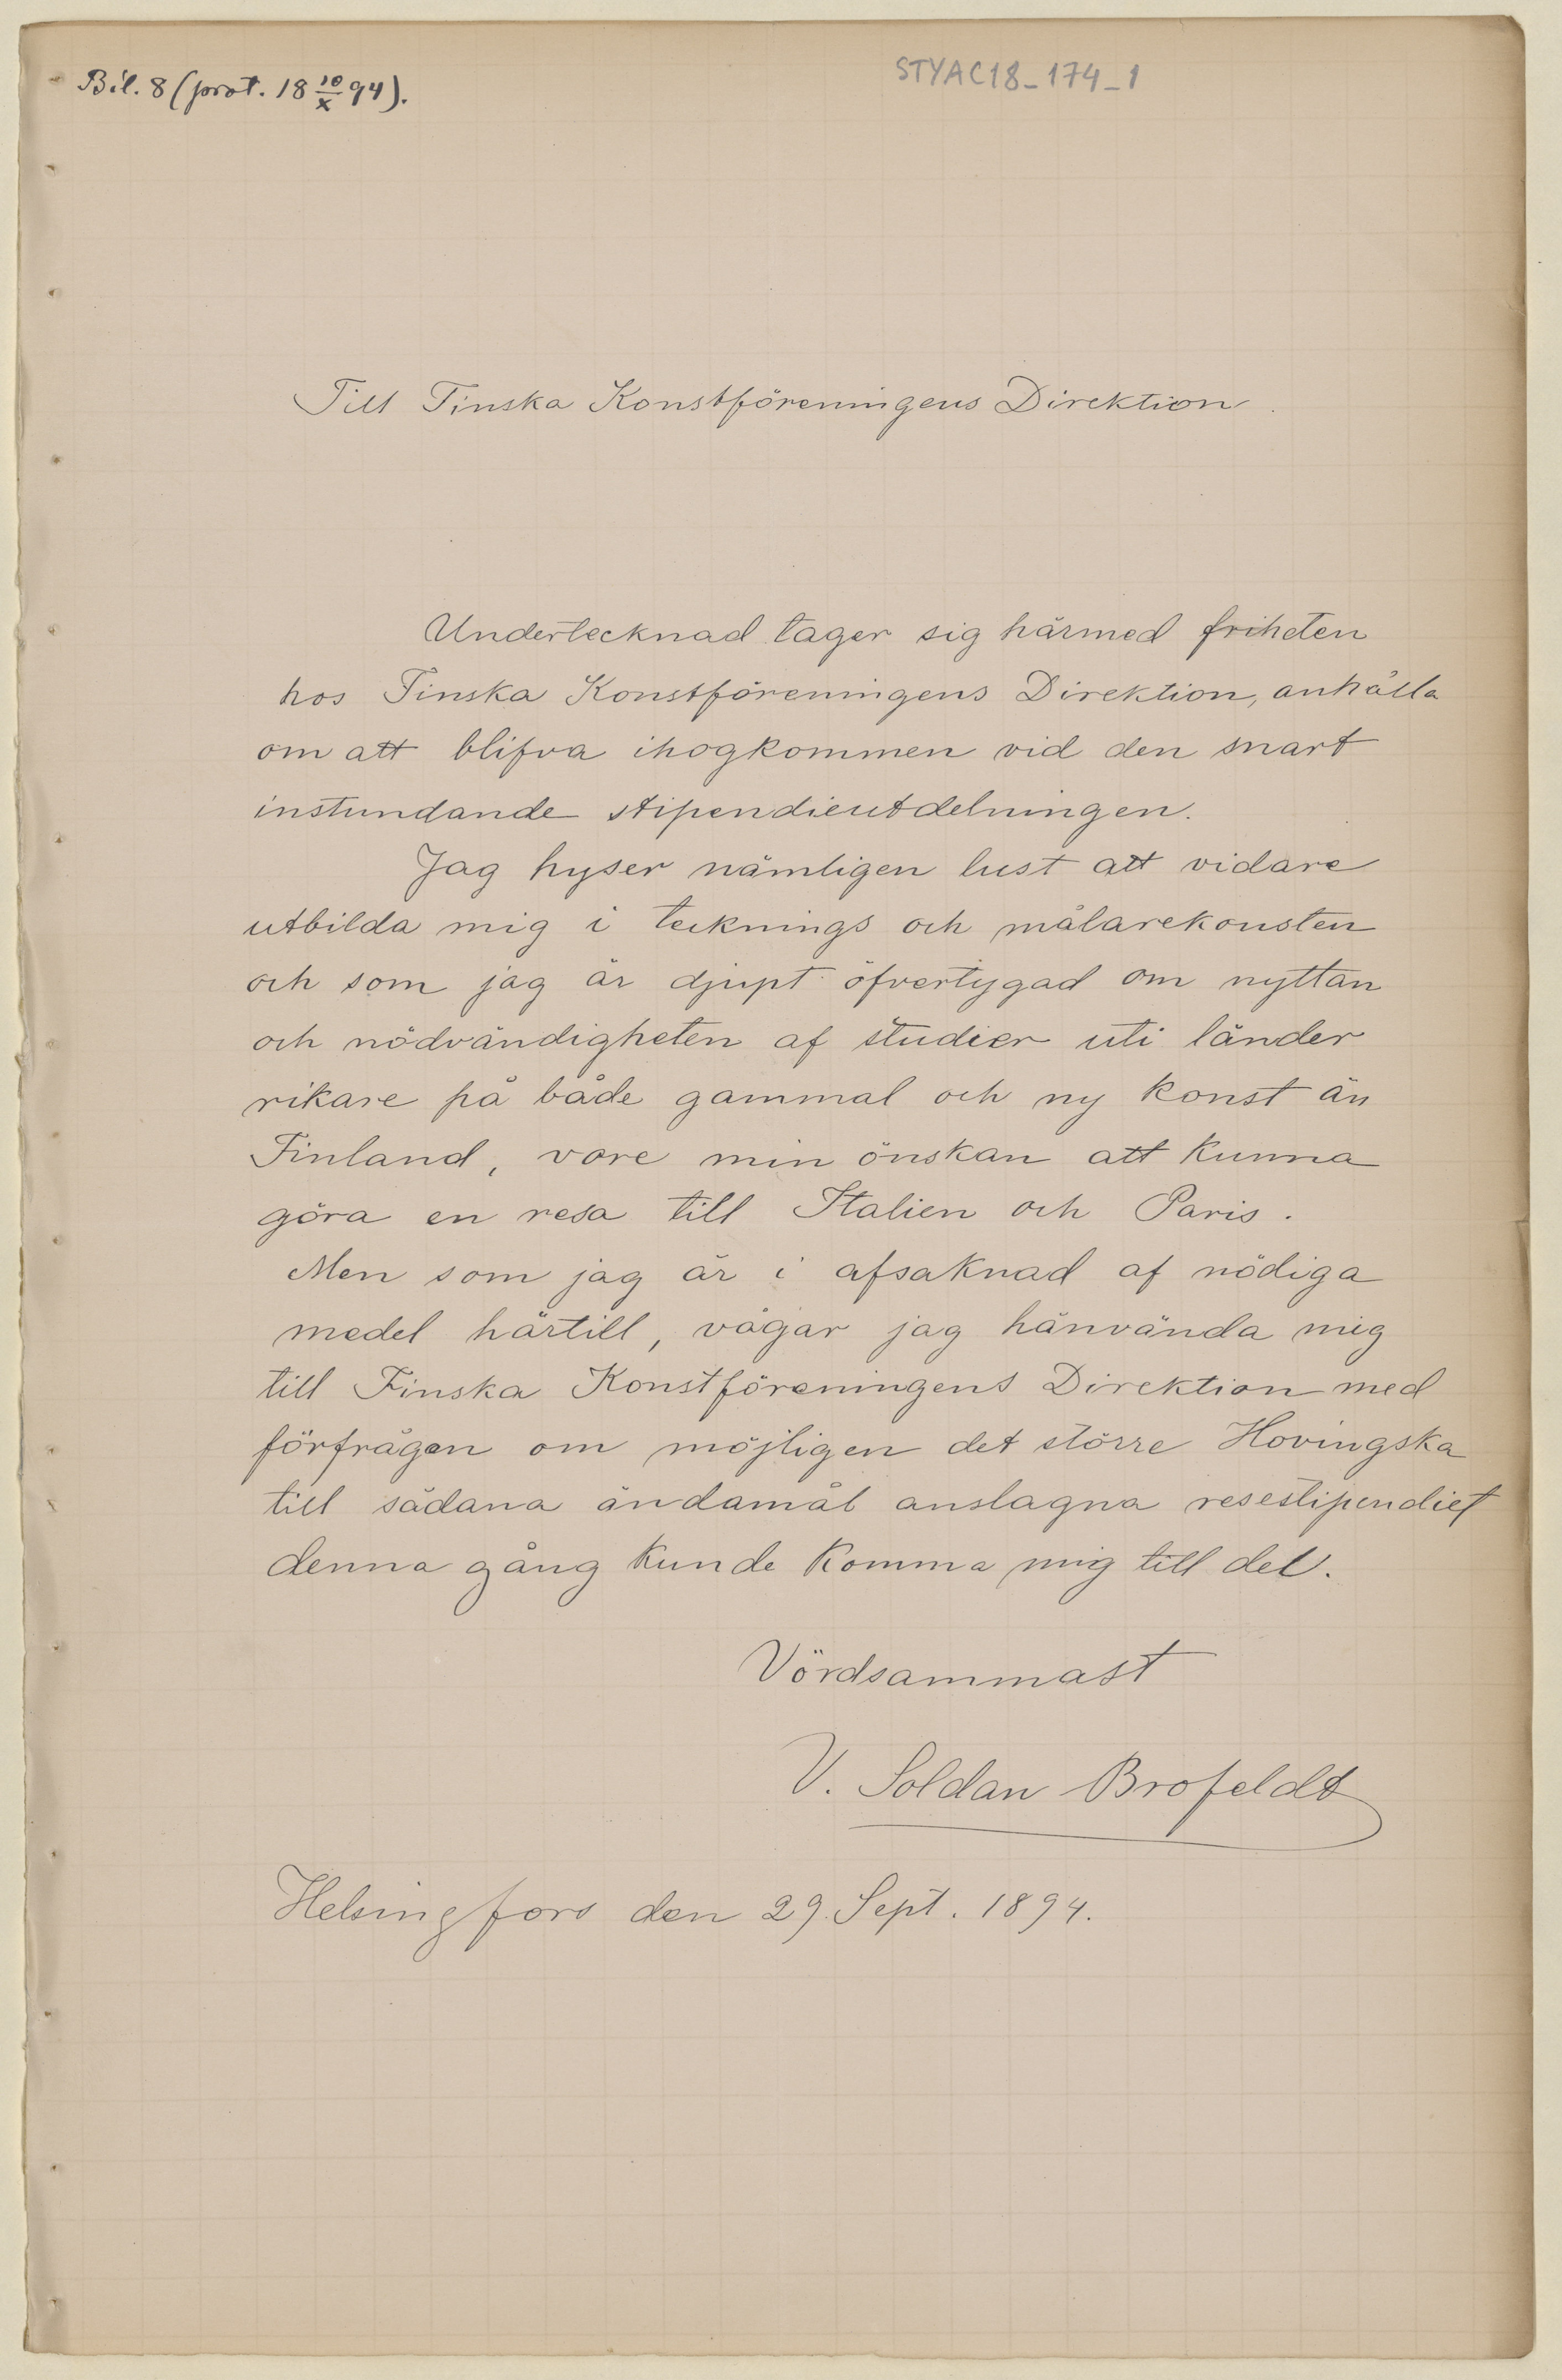 Bil. 8 (prot. 18 10/X 94).
STYAC18_174_1
Till Finska Konstföreningens Direktion.
Undertecknad tager sig härmed friheten
hos Finska Konstföreningens Direktion, anhålla
om att blifva ihogkommen vid den snart
instundande stipendieutdelningen.
Jag hyser nämligen lust att vidare
utbilda mig i tecknings och målarekonsten
och som jag är djupt öfvertygad om nyttan
och nödvändigheten af studier uti länder
rikare på både gammal och ny konst än
Finland, vore min önskan att kunna
göra en resa till Italien och Paris.
Men som jag är i afsaknad af nödiga
medel härtill, vågar jag hänvända mig
till Finska Konstföreningens Direktion med
förfrågan om möjligen det större Hovingska
till sådana ändamål anslagna resestipendiet
denna gång kunde komma mig till del.
Vördsammast
V. Soldan Brofeldt
Helsingfors den 29. Sept. 1894.